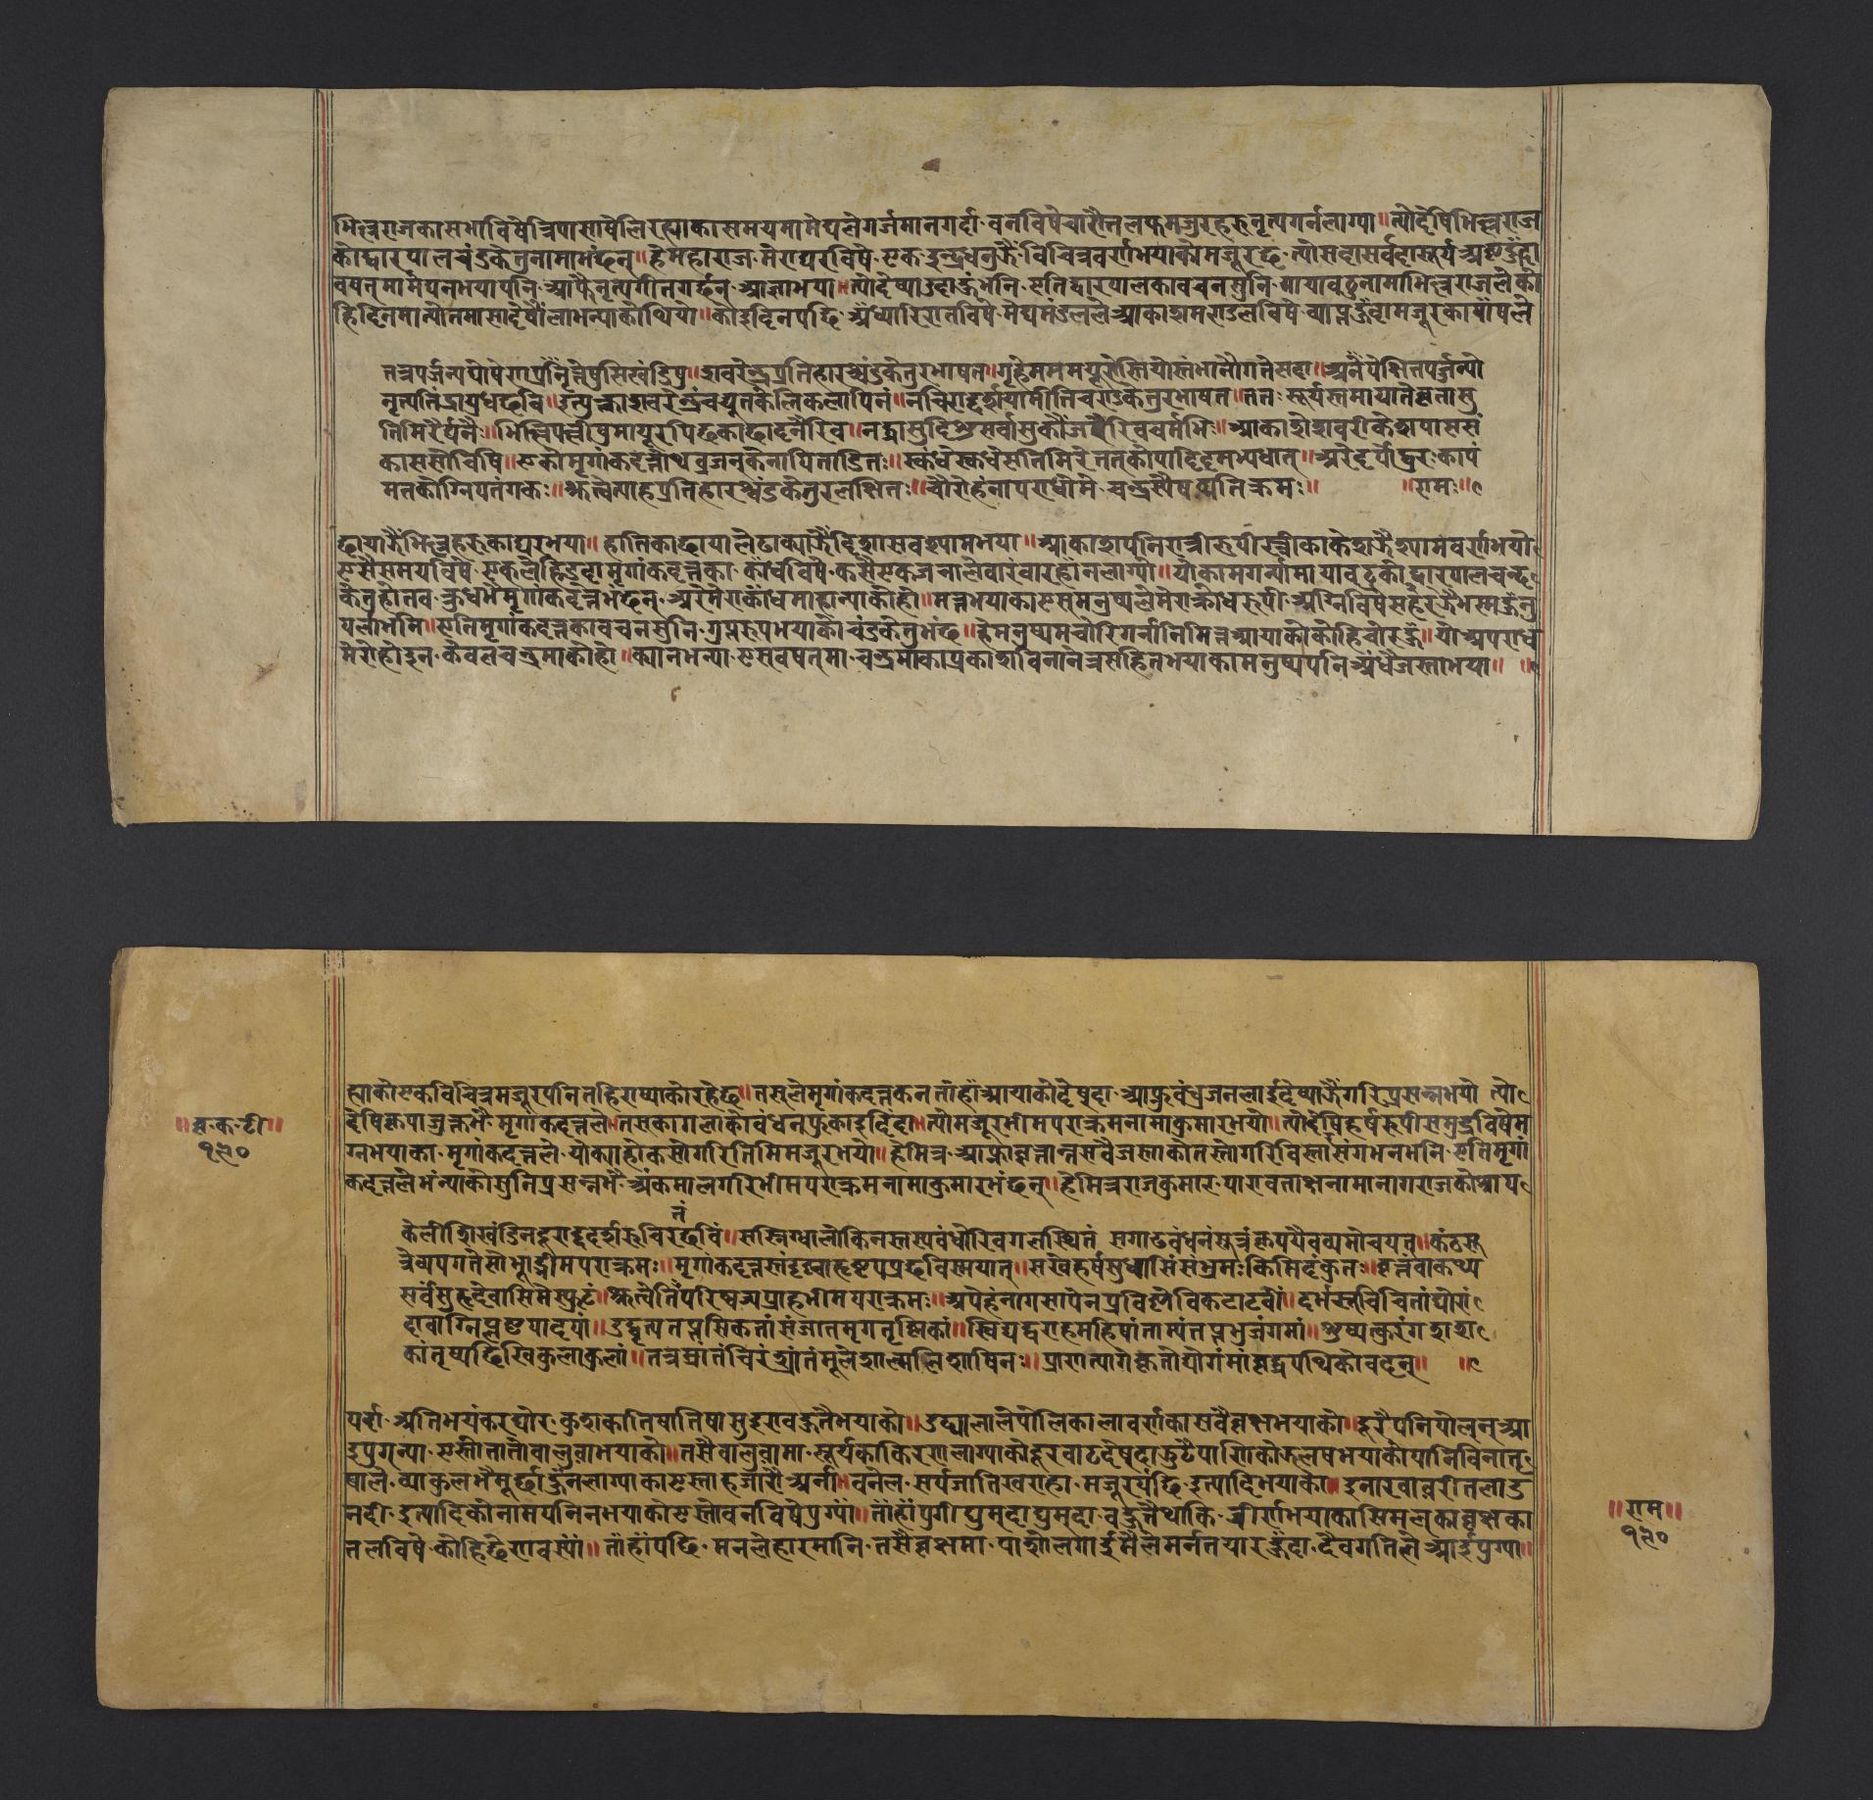 भिल्लराजकासभाविषेत्रिपासाषेलिरह्याकासमयमामेघलेगर्जमानगर्दा वनविषेचारोैतलर्फमजुरहरुनृत्यगर्नलाग्या॥त्योदेषिभिल्लराज
कोद्वारपालचंडकेतुनामाभंछन्॥हेमहाराज मेराघरविषे एक इन्द्रधनुझैं विचित्रवर्णभयाकोमजूरछ त्योसदासर्वदासूर्य अष्टहुंदा
वषत्मामेघनभयापनि आफैनृत्यगीतगर्छन् आज्ञाभया॥त्योदेष्याउदाहुंभनि एतिद्वारपालकावचनसुनि मायावटुनामाभिल्लराजलेको
हिदिनमात्योतमासादेषौंलाभन्याकोथियो॥कोइदिनपछि अँध्यारिरातविषे मेघमंडलले आकाशमण्डलविषे व्याप्तहुँदामजूरकाषोंषले
तत्रपर्जन्यघोषेणप्रनृत्तेषुशिखंडिषु॥शवरेन्द्रंप्रतिहारश्चंडकेतुरभाषत॥गृहेममममयूरोस्तियोस्तंभानौगतेसदा॥अनपेक्षितपर्जन्यो
नृत्यतींद्रायुधछविः॥इत्युक्त्वाशवरेंद्रंचयुतकेलिकलापिनं॥नचिराद्दर्शयामीतिचण्डकेतुरभाषत॥ततःसूर्यस्तमायातेवृतासु
तिमिरैर्घनैः॥भिल्लिपल्लीषुमायूरपिछकाछादनैरिव॥नद्धासुदिक्षुसर्वासुकौंजरैरिवचर्मभिः॥आकाशेशवरीकेशपाशसं
काससोचिषि॥एकोमृगांकदत्तोथव्रजन्केनापिताडितः॥स्कंधेस्कंधेसतिमिरेततकोपादिदमभ्यधात्॥अरेदर्पोद्धुरःकोपं
मतकोग्निपतंगकः॥श्रुत्वैत्याहप्रतिहारश्चंडकेतुरलक्षितः॥चौरोहंनापराधोमे चन्द्रस्यैषव्यतिक्रमः॥ ॥रामः॥
छायाझैंभिल्लहरुकाघरभया॥हातिकाछालालेढाक्याझैंदिशासवश्यामभया॥आकाशपनिरात्रीरूपीस्त्रीकाकेशझैश्यामवर्णभयो
एसैसमयविषे एकलैहिड्दामृगांकदत्तका काँधविषे कसैएकजनालेवारंवारहान्नलाग्यो॥योकामगर्न्यामायावटुकोद्वारपालचन्द्र
केतुहोतव क्रुधभैमृगांकदत्तभंछन् अरेमेराकाँधमाहान्याकोहो॥मत्तभयाकाएसमनुष्यलेमेराक्रोधरूपी अग्निविषेसहरझैभस्महुन
यलाभनि॥एतिमृगांकदत्तकावचनसुनि गुप्तरूपभयाकोचंडकेतुभंछ॥हेमनुष्यमचोरिगर्नानिमित्तआयाकोकोहिचोरहुँ॥योअपराध
मेरोहोइन केवलचन्द्रमाकोहो॥क्यानभन्या एसवषत्मा चन्द्रमाकाप्रकाशविनानेत्रसहितभयाकामनुष्यपनिअंधेजस्ताभया॥
॥वृ॰क॰टी॥
१९०
ह्याकोएकविचित्रमजूरपनितहिराष्याकोरहेछ॥तसलेमृगांकदत्तकनताँहाँआयाकोदेषदा आफ्नुवंधुजनलाईदेष्याझैंगरिप्रसन्नभयो त्यो
देषिकृपाजुक्तभै मृगांकदत्तले तसकागलाकोवंधनफुकाइदिंदा॥त्योमजूरभीमपराक्रमनामाकुमारभयो॥त्योदेषिहर्षरूपीसमुद्रविषेम
ग्नभयाका मृगांकदत्तले योक्याहोकसोगरितिमिमजूरभयौ॥हेमित्र आफ्नावृत्तान्तसवैजस्ताकोतस्तोगरिविस्तारसंगभनभनि एतिमृगां
कदत्तलेभंन्याकोसुनिप्रसन्नभै अंकमालगरिभीमपराक्रमनामाकुमारभंछन्॥हेमित्रराजकुमार पारावताक्षनामानागराजकोश्राप
केलीशिखंडिनंदूराद्ददर्शरुचिरछविं॥सस्निग्धालोकिनस्तस्यवंधोरिवगलस्थितं सगाढवंधनंसूत्रंकृपयैवव्यमोचयत्॥कंठसू
त्रेव्यपगतेसोभूद्भीमपराक्रमः॥मृगांकदत्तस्तंदृष्ट्वाहृष्टःपप्रछविस्मयात्॥सखेहर्षसुधासिंसंभ्रमःकिमिदंकुतः॥वृत्तंवाकथ्य
सर्वंसुहृदेवासिमेस्फुटं॥श्रुत्वैतंपरिष्वज्यप्राहभीमपराक्रमः॥अपेहंनागसापेनप्रविष्टोविकटाटवीं॥दर्भस्तूचिचितांघोरां
दावाग्निप्लुष्टपादपां॥उद्धृत्यतप्तसिकतांसंजातमृगतृष्णिकां॥खिद्यद्वराहमहिषांताम्यंतप्तभुजंगमां॥शुष्यत्कुरंगशशा
कांतृष्यच्छिखिकुलाकुलां॥तत्रभ्रांतंचिरंश्रांतंमूलेशाल्मलिशाषिनः॥प्राणत्यागेकृतोद्योगंमांवृद्धपथिकोवदत्॥
पर्दा अतिभयंकरघोर कुशकातिषातिषासुइरावहुतैभयाको॥डढ्यालालेपोलिकालावर्णकासवैवृक्षभयाको॥दूरैपनिपोलन्आ
इपुगन्या एस्तीतातोवालुवाभयाको॥तसैवालुवामा सूर्यकाकिरणलाग्याकोदूरवाटदेषदाझुटैपाणिकोझलषभयाकोपानिविनातृ
षाले व्याकुलभैमूर्छाहुँनलाग्याकाएस्ताहजारौअर्ना॥वनेल सर्पजातिखराहा मजूरपंछि इत्यादिभयाको॥इनारवावरीतलाउ
नदी इत्यादिकोनामपनिनभयाकोएस्तोवनविषेपुग्यां॥ताँहाँपुगीघुमदाघुमदा वहुतैथाकि जीर्णभयाकासिमलकावृक्षका
तलविषे कोहिछिणवस्यां॥ताँहाँपछि मनलेहारमानि तसैवृक्षमा पाशोलगाईमैलेमर्नतयारहुँदा दैवगतिले आईपुग्या॥
॥राम॥
१९०